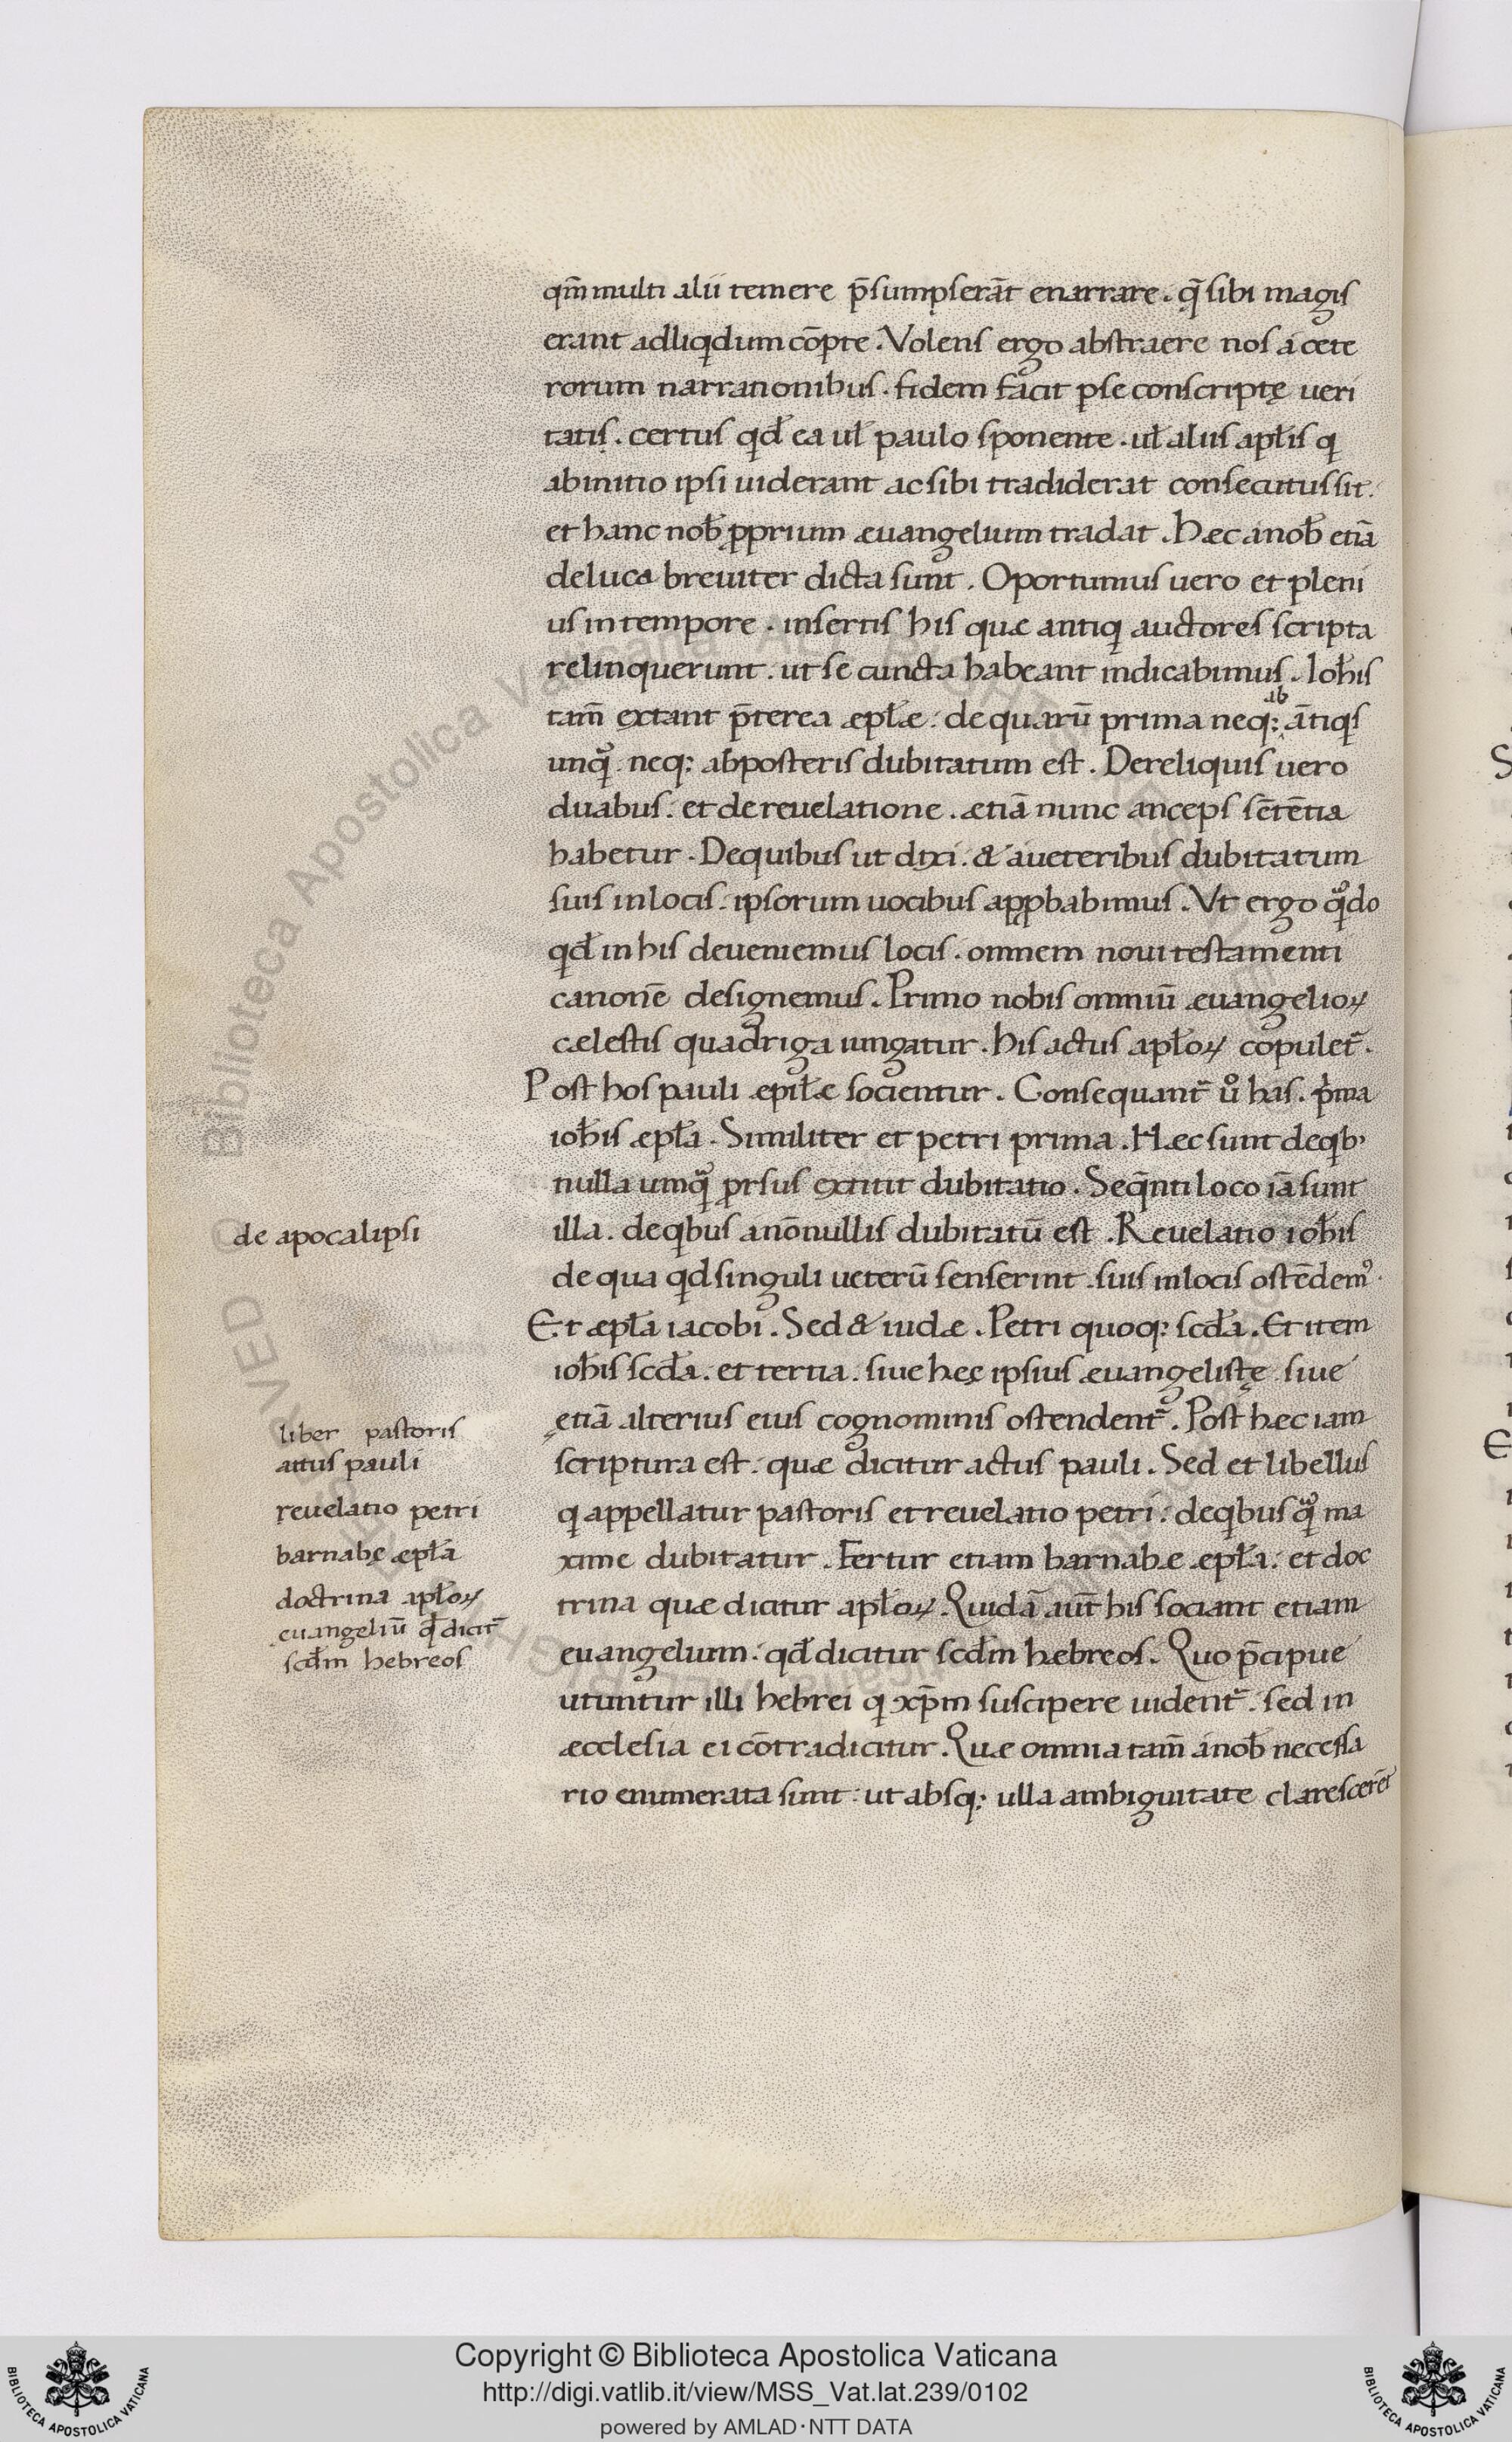 qm̄ multi alii temere p̄sumpserāt enarrare. q̄ sibi magis
erant adliqdum cōpte. Volens ergo abstraere nos a cete
rorum narrationibus. fidem facit pse conscriptę ueri
tatis. certus qđ ea uł paulo sponente. uł aliis apłis q
abinitio ipsi uiderant ac sibi tradiderat consecutus sit.
et hanc nob̄ pprium æuangelium tradat. Hæc anob̄ etiā
deluca breuiter dicta sunt. Oportunius uero et pleni
us in tempore. insertis his quæ antiq auctores scripta
relinquerunt. ut se cuncta habeant indicabimus. Ioh̄is
tam̄ extant p̄terea æpłæ. de quarū prima neq; ab āntiqs
unqͣ neq; abposteris dubitatum est. Dereliquis uero
duabus. et de reuelatione. ætiā nunc anceps sētētia
habetur. Dequibus ut dixi. & a ueteribus dubitatum
suis inlocis. ipsorum uocibus appbabimus. Vt ergo qͣdo
qđ in his deueniemus locis. omnem noui testamenti
canonē designemus. Primo nobis omniū æuangelioꝝ
cælestis quadriga iungatur. his actus apłoꝝ copulet̄.
Post hos pauli æpiłæ socientur. Consequant̄ uͦ has. pͥma
ioh̄is æpła. Similiter et petri prima. Hæc sunt deqb;
nulla umqͣ prsus extitit dubitatio. Seq̄nti loco iā sunt
illa. deqbus anōnullis dubitatū est. Reuelatio ioh̄is
de qua qd singuli ueterū senserint. suis inlocis ostēdemꝰ.
Et æpła iacobi. Sed & iudæ. Petri quoq; scđa. Et item
ioh̄is scđa. et tertia. siue hęc ipsius æuangelistę siue
etiā alterius eius cognominis ostendent̄. Post hæc iam
scriptura est. quæ dicitur actus pauli. Sed et libellus
q appellatur pastoris et reuelatio petri. deqbus qͣ ma
xime dubitatur. Fertur etiam barnabæ æpła. et doc
trina quæ dicitur apłoꝝ. Quidā aut̄ his sociant etiam
euangelium. qđ dicitur scđm hæbreos. Quo p̄cipue
utuntur illi hebrei q xp̄m suscipere uident̄. sed in
æcclesia ei cōtradicitur. Quæ omnia tam̄ anob̄ necessa
rio enumerata sunt. ut absq; ulla ambiguitate clarescerēt
de apocalipsi
liber pastoris
attus pauli
reuelatio petri
barnabę æpła
doctrina apłoꝝ
euangeliū qđ dicit̄
scđm hebreos
Biblioteca Apostolica Vaticana
Copyright © Biblioteca Apostolica Vaticana
http://digi.vatlib.it/view/MSS_Vat.lat.239/0102
powered by AMLAD·NTT DATA
BIBLIOTECA APOSTOLICA VATICANA
BIBLIOTECA APOSTOLICA VATICANA